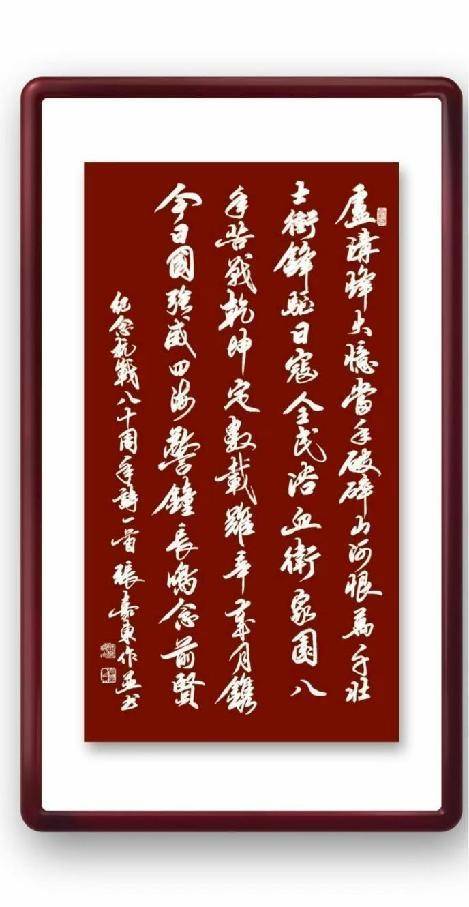 盧溝烽火憶當年破碎山河恨萬千壯
士衝鋒驅日寇全民浴血衛家園八
年苦戰乾坤定數載艱辛歲月鐫
今日國強威四海警鐘長鳴念前賢
紀念抗戰八十周年詩一首張嘉東作並书